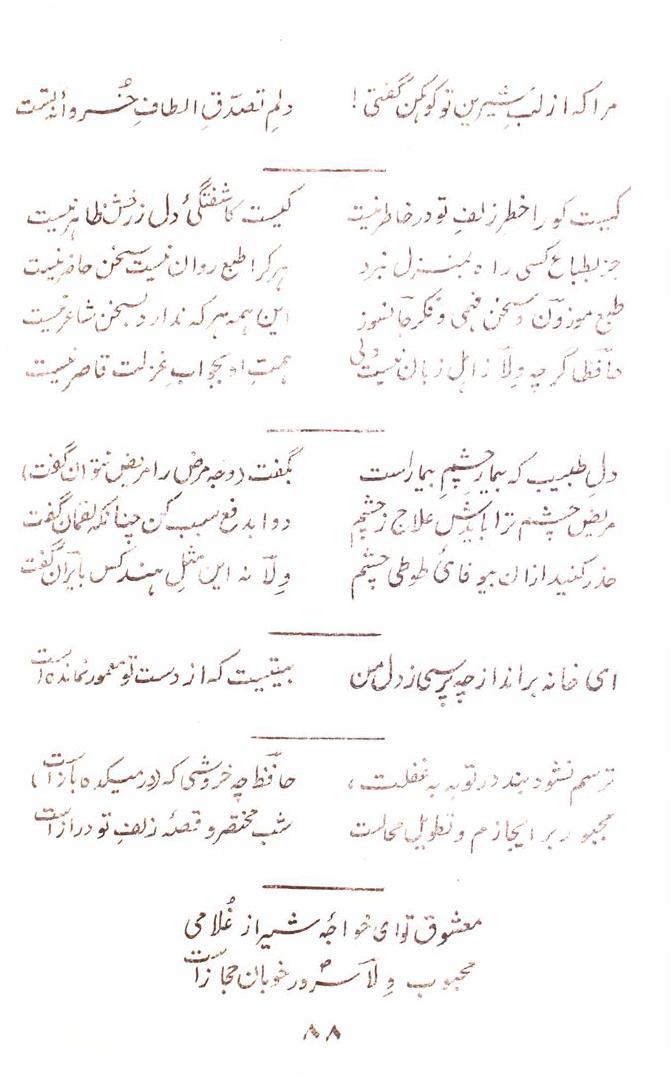 مرا که از لبِ شیرین تو کوہکن گفتی! دلم تصدّقِ الطافِ خُسروانۂ تست
کیست کو را خطرِ زلفِ تو در خاطر نیست کیست کاشفتگیٔ دل ز رخش ظاہر نیست
جز بطباع کسی راہ بمنزل نبرد ہر کرا طبع روان نیست سخن حاضر نیست
طبع موزون و سخن فہمی و فکر جانسوز این ہمہ ہر کہ ندارد بسخن شاعر نیست
حافظا گرچہ وِلاؔ ز اہلِ زبان نیست ولی ہمتِ او بجوابِ غزلت قاصر نیست
دلِ طبیب کہ بیمارِ چشمِ بیمار است بگفت (وجہِ مرض را مریض نتوان گفت)
مریض چشم ترا بایدش علاج ز چشم دوا بدفعِ سبب کن چنانکہ لقمان گفت
حذر کنید ازان بیوفائ طوطی چشم وِلاؔ نہ این مثلِ ہند کس بایران گفت
ای خانہ برانداز چہ پرسی ز دل من بیتیست کہ از دست تو معمور نماندہ است
ترسم نشود بند درِ توبہ بہ غفلت، حافظؔ چہ خروشی کہ (درِ میکدہ باز است)
مجبور بر ایجازم و تطویل محالست شب مختصر و قصۂ زلفِ تو دراز است
معشوق تو ای خواجۂ شیراز غُلامی
محبوب وِلاؔ سرورِ خوبان حجاز است
۸۸